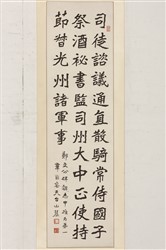 司徒諮議通直散騎常侍國子
祭酒祕書監司州大中正使持
節督光州諸軍事
鄭文公碑